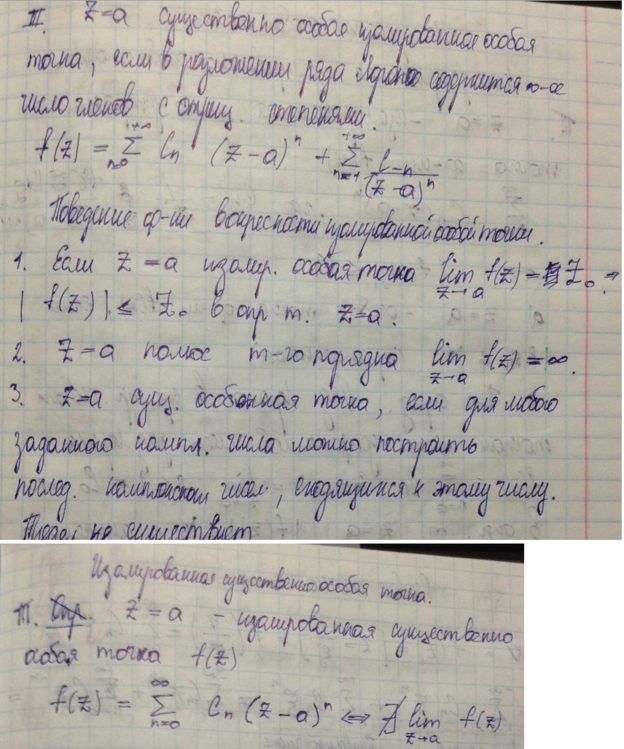 III. z=a существенно особая изолированная особая
точка, если в разложении ряда Лорана содержится ∞-ое
число членов с отриц. степенями.
f(z) = ∑_{n=0}^{+∞} C_n (z-a)^n + ∑_{n=1}^{+∞} C_{-n}/(z-a)^n
Поведение ф-ии в окресности изолированной особой точки.
1. Если z=a изолир. особая точка lim_{z→a} f(z) = Z₀ ⇒
|f(z)| ≤ Z₀ в опр т. z=a.
2. z=a полюс m-го порядка lim_{z→a} f(z) = ∞.
3. z=a сущ. особенная точка, если для любого
заданного компл. числа можно построить
послед. комплексных чисел, сходящихся к этому числу.
Предел не существует
Изолированная существенно особая точка.
Т. Опр. z=a – изолированная существенно
особая точка f(z)
f(z) = ∑_{n=0}^{∞} C_n (z-a)^n ⇔ ∄ lim_{z→a} f(z)